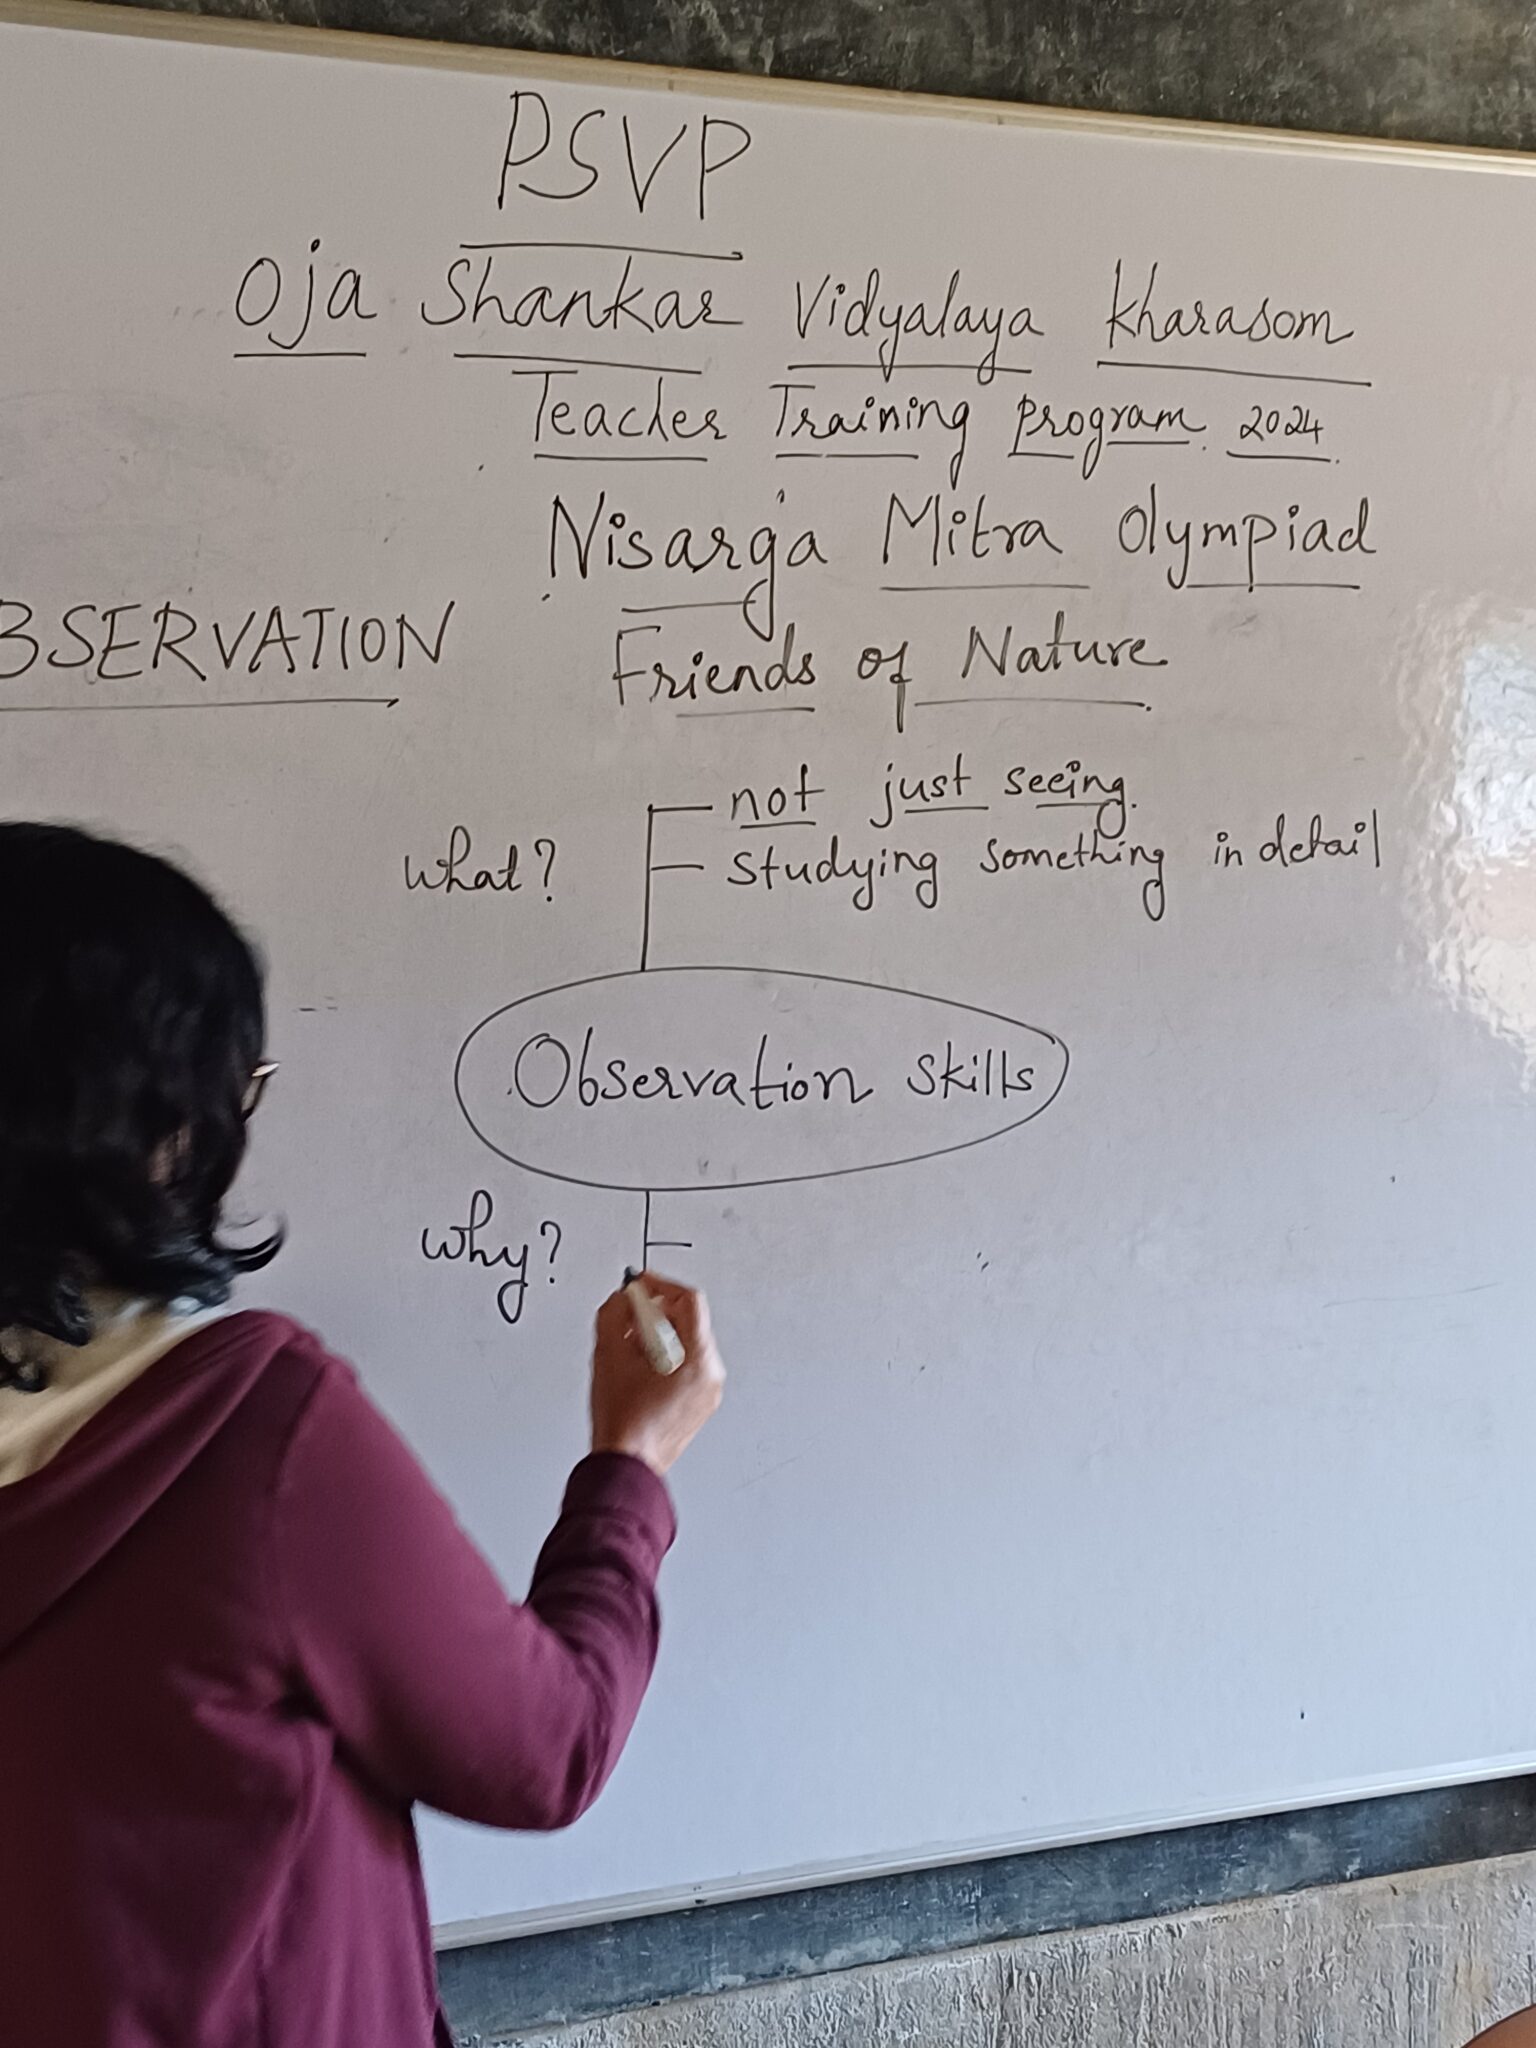 PSVP
Oja Shankar Vidyalaya Kharasom
Teacher Training Program 2024
Nisarga Mitra Olympiad
BSERVATION
Friends of Nature
not just seeing.
What?
studying something in detail
Observation skills
Why?